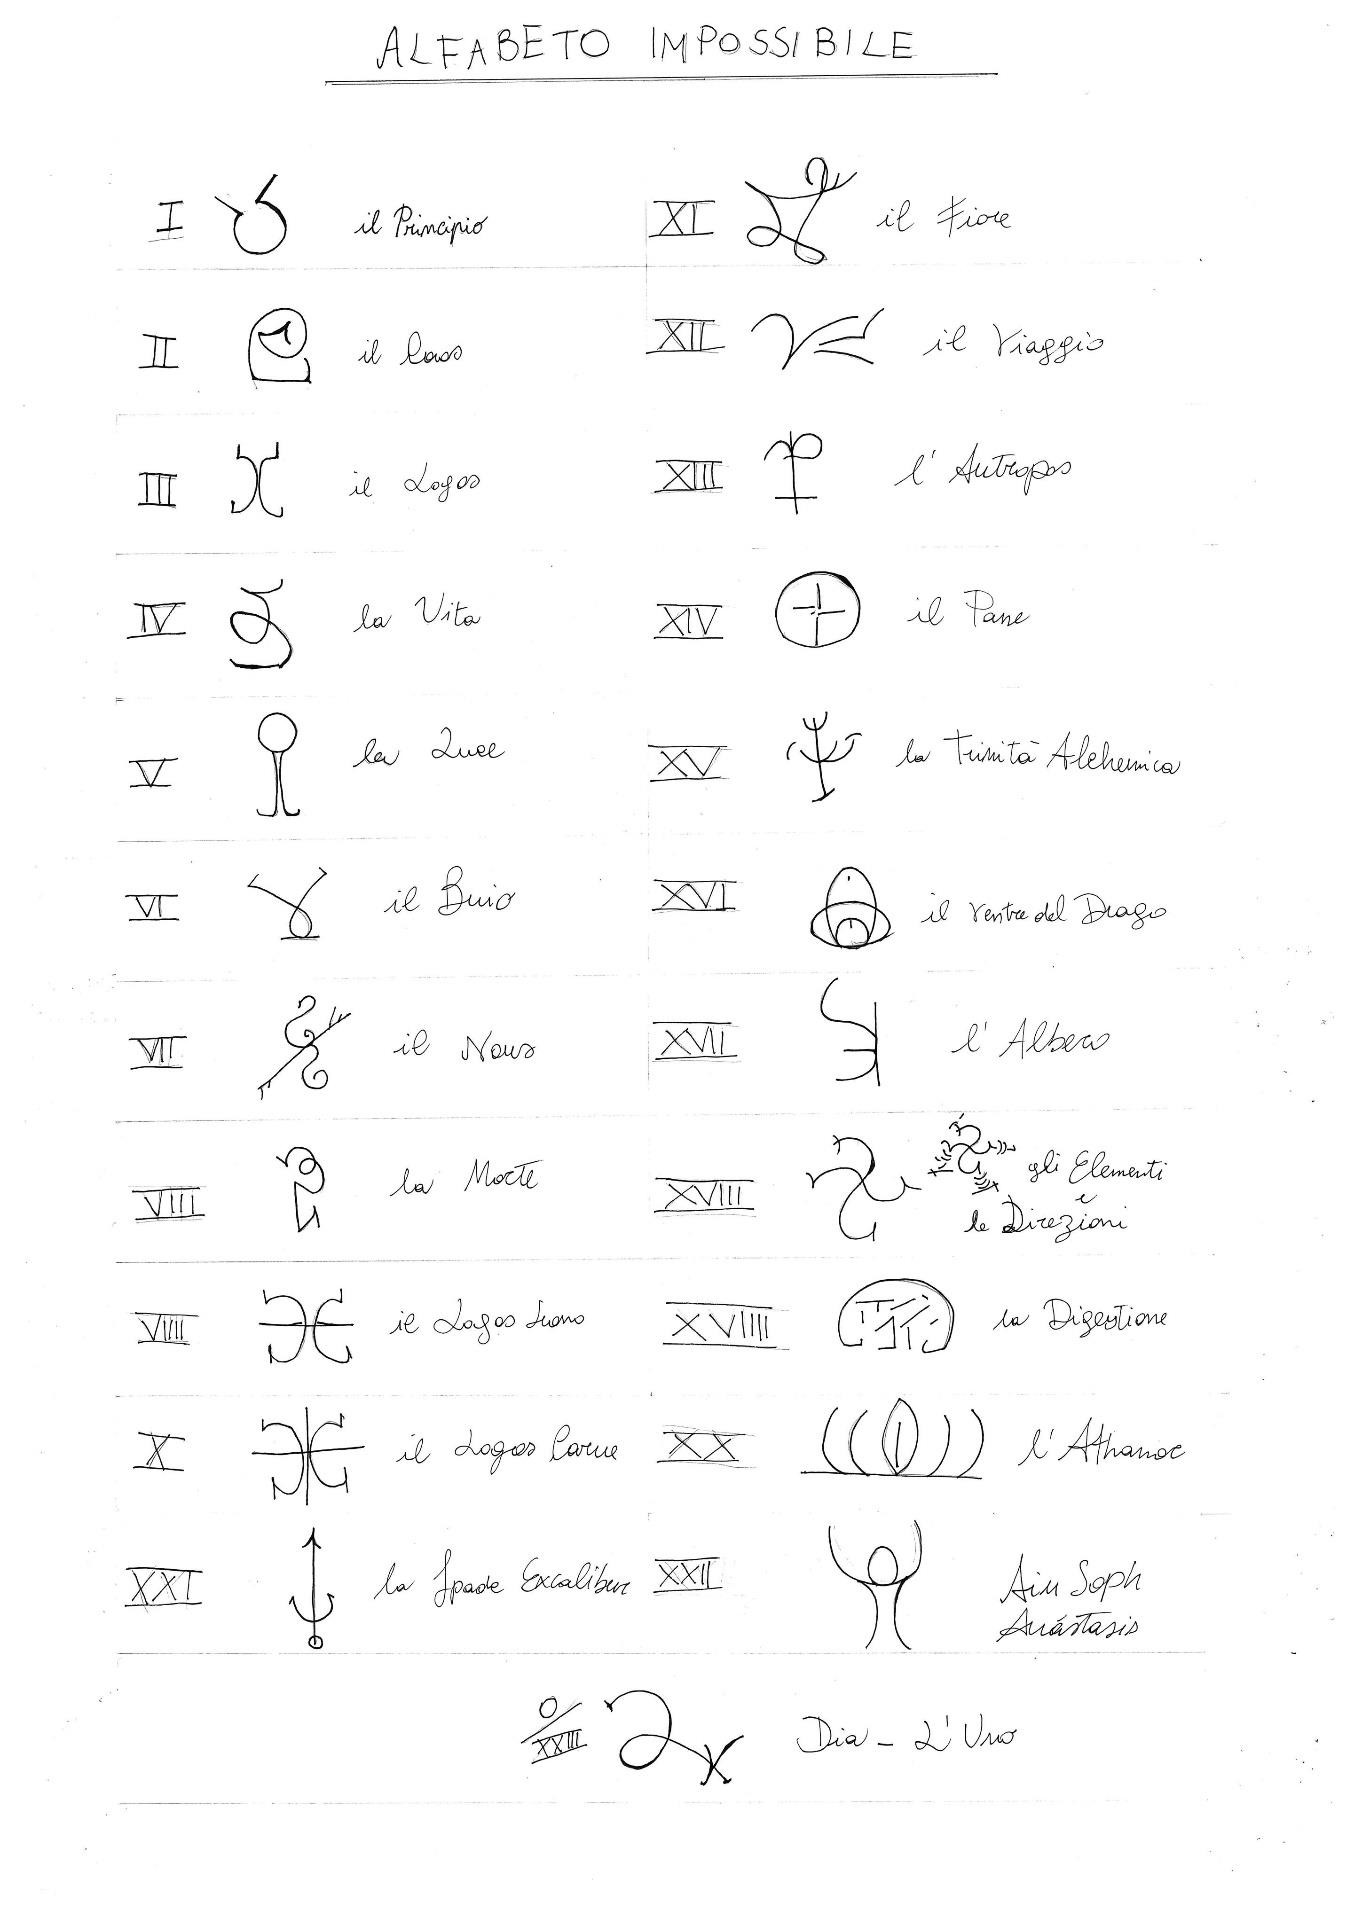 ALFABETO IMPOSSIBILE
I il Principio
II il Caos
III il Logos
IV la Vita
V la Luce
VI il Buio
VII il Nous
VIII la Morte
VIIII il Logos Suono
X il Logos Carne
XI il Fiore
XII il Viaggio
XIII l' Antropos
XIV il Pane
XV la Trinità Alchemica
XVI il Ventre del Drago
XVII l' Albero
XVIII gli Elementi
e
le Direzioni
XVIIII la Digestione
XX l' Athanor
XXI la Spada Excalibur
XXII Ain Soph
Anástasis
O/XXIII Dia - L' Uno